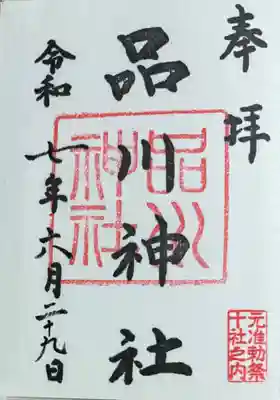 奉拝
品川神社
令和七年六月二十九日
品川
神社
元准勅祭
十社之内